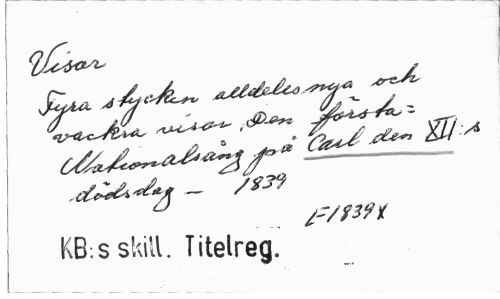 Visor
Fyra stycken alldeles nya och
vackra visor. Den första =
Nationalsång på Carl den XII:s
dödsdag – 1839
E1839x
KB:s skill. Titelreg.